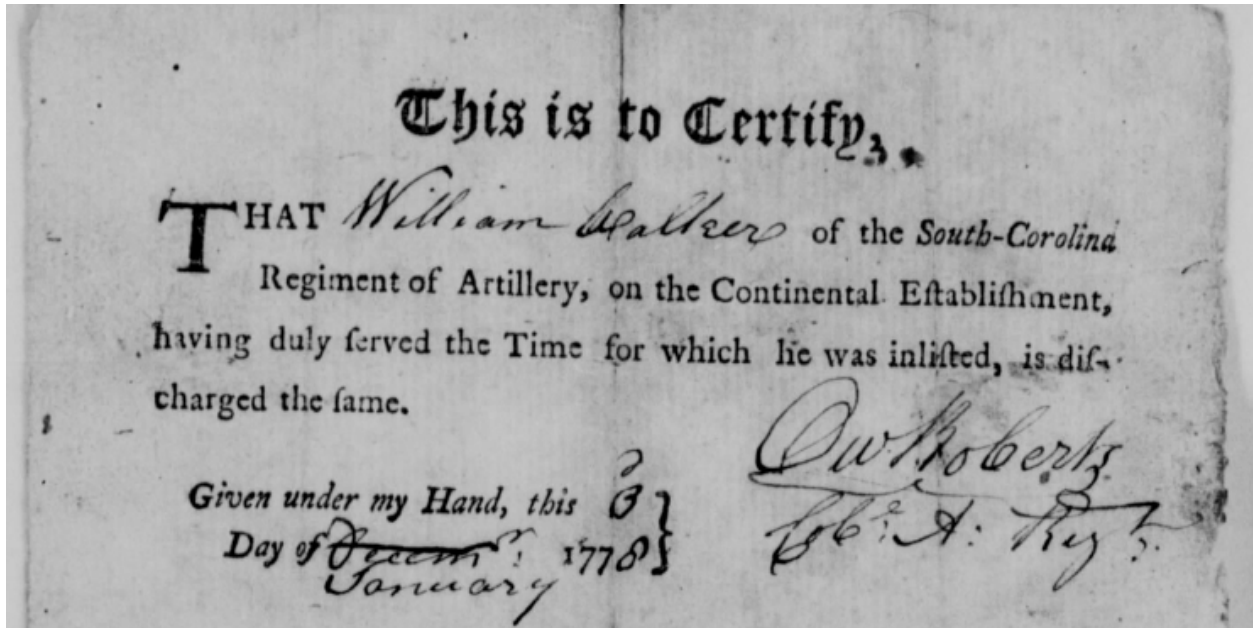 This is to Certify,
THAT William Calker of the South-Corolina
Regiment of Artillery, on the Continental Eſtabliſhment,
having duly ſerved the Time for which he was inliſted, is diſ-
charged the ſame.
Ow Roberts
Given under my Hand, this 3d
Colo. A: Regt.
Day of Decemr. 1778
January